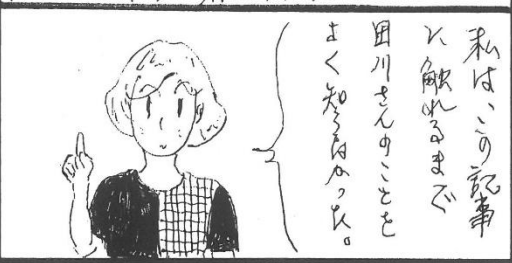 私は、この記事
に触れるまで
田川さんのことを
よく知らなかった。